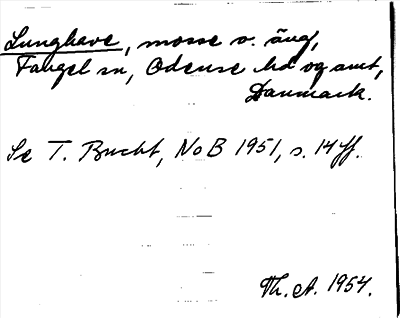 Lunghave, mosse v. äng,
Fangel sn, Odense hd og amt,
Danmark.
Se T. Bucht, NoB 1951, s. 14 ff.
Th. A. 1954.